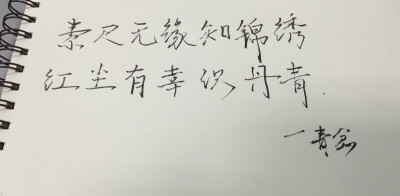 素尺无缘知锦绣
红尘有幸识丹青.
一青